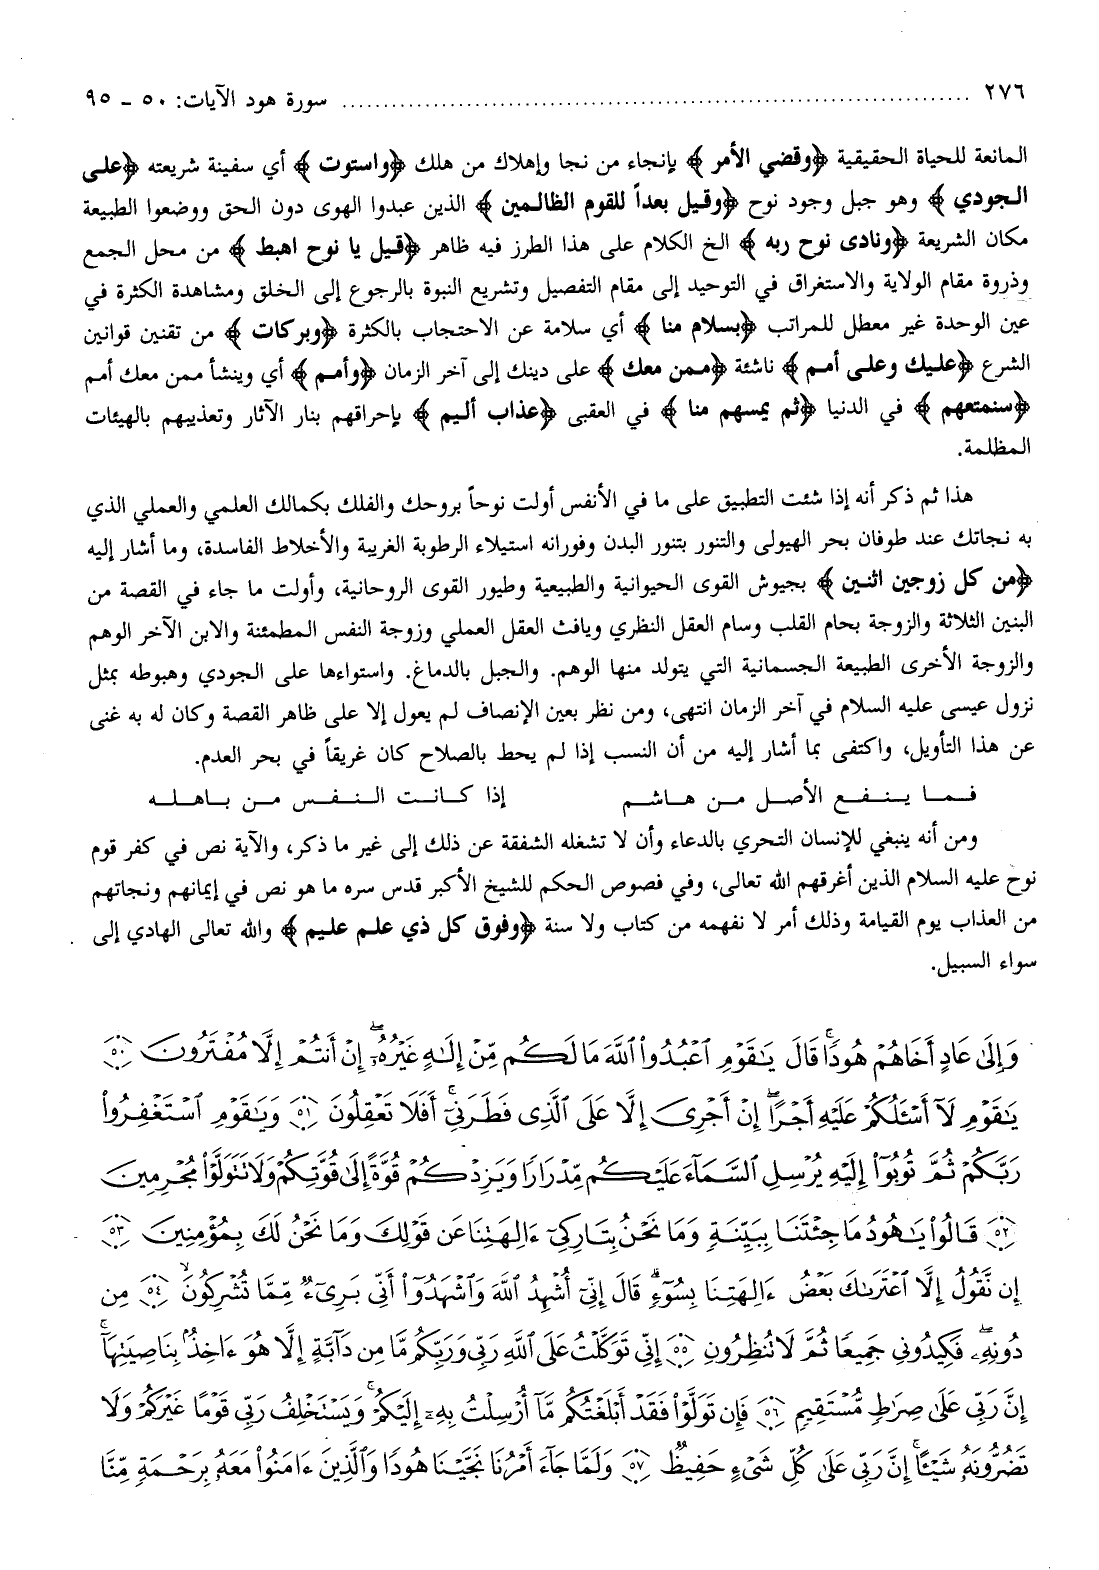 ٢٧٦ ........................................ سورة هود الآيات: ٥٠ - ٩٥
المانعة للحياة الحقيقية ﴿وقضي الأمر﴾ بإنجاء من نجا وإهلاك من هلك ﴿واستوت﴾ أي سفينة شريعته ﴿على
الجودي﴾ وهو جبل وجود نوح ﴿وقيل بعداً للقوم الظالمين﴾ الذين عبدوا الهوى دون الحق ووضعوا الطبيعة
مكان الشريعة ﴿ونادى نوح ربه﴾ الخ الكلام على هذا الطرز فيه ظاهر ﴿قيل يا نوح اهبط﴾ من محل الجمع
وذروة مقام الولاية والاستغراق في التوحيد إلى مقام التفصيل وتشريع النبوة بالرجوع إلى الخلق ومشاهدة الكثرة في
عين الوحدة غير معطل للمراتب ﴿بسلام منا﴾ أي سلامة عن الاحتجاب بالكثرة ﴿وبركات﴾ من تقنين قوانين
الشرع ﴿عليك وعلى أمم﴾ ناشئة ﴿ممن معك﴾ على دينك إلى آخر الزمان ﴿وأمم﴾ أي وينشأ ممن معك أمم
﴿سنمتعهم﴾ في الدنيا ﴿ثم يمسهم منا﴾ في العقبى ﴿عذاب أليم﴾ بإحراقهم بنار الآثار وتعذيبهم بالهيئات
المظلمة.
هذا ثم ذكر أنه إذا شئت التطبيق على ما في الأنفس أولت نوحاً بروحك والفلك بكمالك العلمي والعملي الذي
به نجاتك عند طوفان بحر الهيولى والتنور بتنور البدن وفورانه استيلاء الرطوبة الغريبة والأخلاط الفاسدة، وما أشار إليه
﴿من كل زوجين اثنين﴾ بجيوش القوى الحيوانية والطبيعية وطيور القوى الروحانية، وأولت ما جاء في القصة من
البنين الثلاثة والزوجة بحام القلب وسام العقل النظري ويافث العقل العملي وزوجة النفس المطمئنة والابن الآخر الوهم
والزوجة الأخرى الطبيعة الجسمانية التي يتولد منها الوهم. والجبل بالدماغ. واستواءها على الجودي وهبوطه بمثل
نزول عيسى عليه السلام في آخر الزمان انتهى، ومن نظر بعين الإنصاف لم يعول إلا على ظاهر القصة وكان له به غنى
عن هذا التأويل، واكتفى بما أشار إليه من أن النسب إذا لم يحط بالصلاح كان غريقاً في بحر العدم.
فما ينفع الأصل من هاشم إذا كانت النفس من باهله
ومن أنه ينبغي للإنسان التحري بالدعاء وأن لا تشغله الشفقة عن ذلك إلى غير ما ذكر، والآية نص في كفر قوم
نوح عليه السلام الذين أغرقهم الله تعالى، وفي فصوص الحكم للشيخ الأكبر قدس سره ما هو نص في إيمانهم ونجاتهم
من العذاب يوم القيامة وذلك أمر لا نفهمه من كتاب ولا سنة ﴿وفوق كل ذي علم عليم﴾ والله تعالى الهادي إلى
سواء السبيل.
وَإِلَىٰ عَادٍ أَخَاهُمْ هُودًا ۚ قَالَ يَـٰقَوْمِ ٱعْبُدُوا۟ ٱللَّهَ مَا لَكُم مِّنْ إِلَـٰهٍ غَيْرُهُۥٓ ۖ إِنْ أَنتُمْ إِلَّا مُفْتَرُونَ ﴿٥٠﴾
يَـٰقَوْمِ لَآ أَسْـَٔلُكُمْ عَلَيْهِ أَجْرًا ۖ إِنْ أَجْرِىَ إِلَّا عَلَى ٱلَّذِى فَطَرَنِىٓ ۚ أَفَلَا تَعْقِلُونَ ﴿٥١﴾ وَيَـٰقَوْمِ ٱسْتَغْفِرُوا۟
رَبَّكُمْ ثُمَّ تُوبُوٓا۟ إِلَيْهِ يُرْسِلِ ٱلسَّمَآءَ عَلَيْكُم مِّدْرَارًا وَيَزِدْكُمْ قُوَّةً إِلَىٰ قُوَّتِكُمْ وَلَا تَتَوَلَّوْا۟ مُجْرِمِينَ
﴿٥٢﴾ قَالُوا۟ يَـٰهُودُ مَا جِئْتَنَا بِبَيِّنَةٍ وَمَا نَحْنُ بِتَارِكِىٓ ءَالِهَتِنَا عَن قَوْلِكَ وَمَا نَحْنُ لَكَ بِمُؤْمِنِينَ ﴿٥٣﴾
إِن نَّقُولُ إِلَّا ٱعْتَرَىٰكَ بَعْضُ ءَالِهَتِنَا بِسُوٓءٍ ۗ قَالَ إِنِّىٓ أُشْهِدُ ٱللَّهَ وَٱشْهَدُوٓا۟ أَنِّى بَرِىٓءٌ مِّمَّا تُشْرِكُونَ ﴿٥٤﴾ مِن
دُونِهِۦ ۖ فَكِيدُونِى جَمِيعًا ثُمَّ لَا تُنظِرُونِ ﴿٥٥﴾ إِنِّى تَوَكَّلْتُ عَلَى ٱللَّهِ رَبِّى وَرَبِّكُم مَّا مِن دَآبَّةٍ إِلَّا هُوَ ءَاخِذٌۢ بِنَاصِيَتِهَآ ۚ
إِنَّ رَبِّى عَلَىٰ صِرَٰطٍ مُّسْتَقِيمٍ ﴿٥٦﴾ فَإِن تَوَلَّوْا۟ فَقَدْ أَبْلَغْتُكُم مَّآ أُرْسِلْتُ بِهِۦٓ إِلَيْكُمْ ۚ وَيَسْتَخْلِفُ رَبِّى قَوْمًا غَيْرَكُمْ وَلَا
تَضُرُّونَهُۥ شَيْـًٔا ۚ إِنَّ رَبِّى عَلَىٰ كُلِّ شَىْءٍ حَفِيظٌ ﴿٥٧﴾ وَلَمَّا جَآءَ أَمْرُنَا نَجَّيْنَا هُودًا وَٱلَّذِينَ ءَامَنُوا۟ مَعَهُۥ بِرَحْمَةٍ مِّنَّا